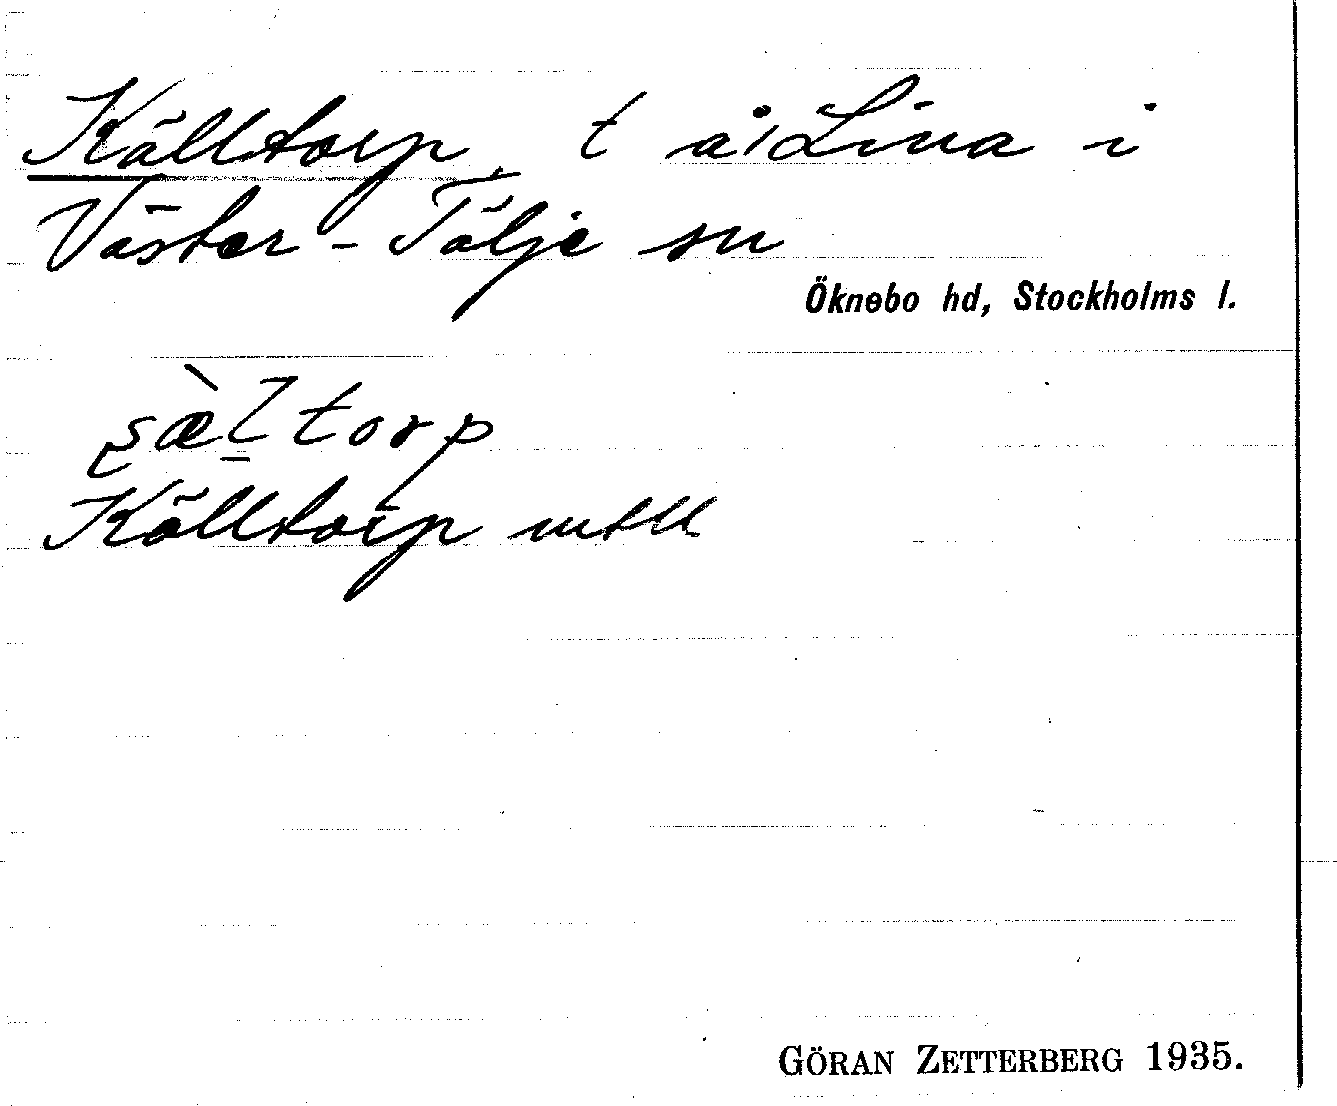 Källtorp t å Lina i
Väster-Tälje sn
Öknebo hd, Stockholms l.
Källtorp mtll
GÖRAN ZETTERBERG 1935.